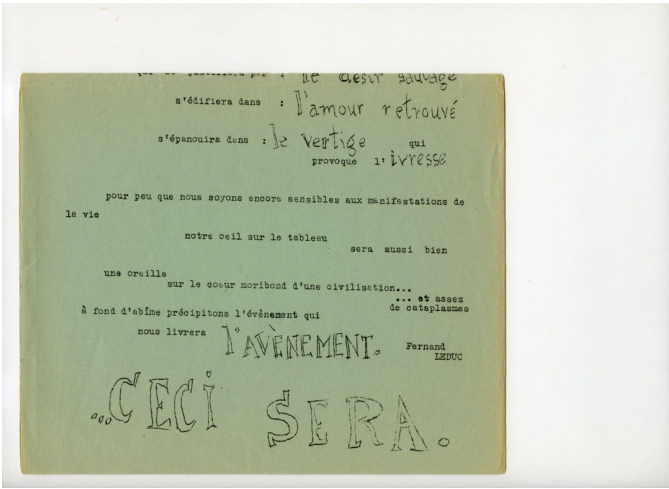 : le désir sauvage
s'édifiera dans : l'amour retrouvé
s'épanouira dans : le vertige qui
provoque l'ivresse
pour peu que nous soyons encore sensibles aux manifestations de
la vie
notre oeil sur le tableau
sera aussi bien
une oreille
sur le coeur moribond d'une civilisation...
... et assez
de cataplasmes
à fond d'abîme précipitons l'évènement qui
nous livrera l'AVÈNEMENT.
Fernand
LEDUC
...CECI SERA.